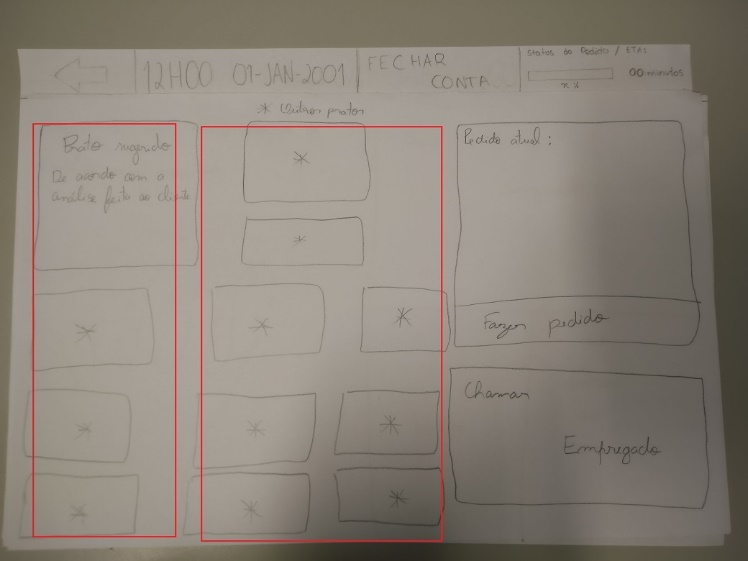 12H00 01-JAN-2001
FECHAR
CONTA
Status do Pedido / ETA:
n %
00 minutos
* Outros pratos
Prato sugerido
De acordo com a
análise feita ao cliente
*
*
*
*
*
*
*
*
*
*
*
Pedido atual:
Fazer pedido
Chamar
Empregado